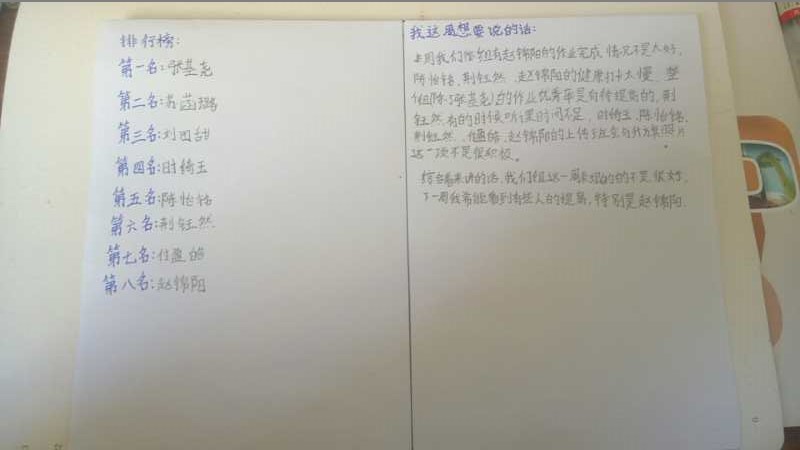 排行榜：
第一名：张基尧
第二名：苏菡璐
第三名：刘田甜
第四名：时绮玉
第五名：陈怡铭
第六名：荆钰然
第七名：付盈皓
第八名：赵锦阳
我这周想要说的话：
本周我们组有赵锦阳的作业完成情况不是太好，
陈怡铭，荆钰然，赵锦阳的健康打卡太慢，整
组除了张基尧的作业优秀率是有待提高的，荆
钰然有的时候听课时间不足，时绮玉，陈怡铭，
荆钰然，付盈皓，赵锦阳的上传班室局外为照片
这一项不是很积极。
综合看来讲的话，我们组这一周表现的不是很好，
下一周我希能看到有些人的提高，特别是赵锦阳.